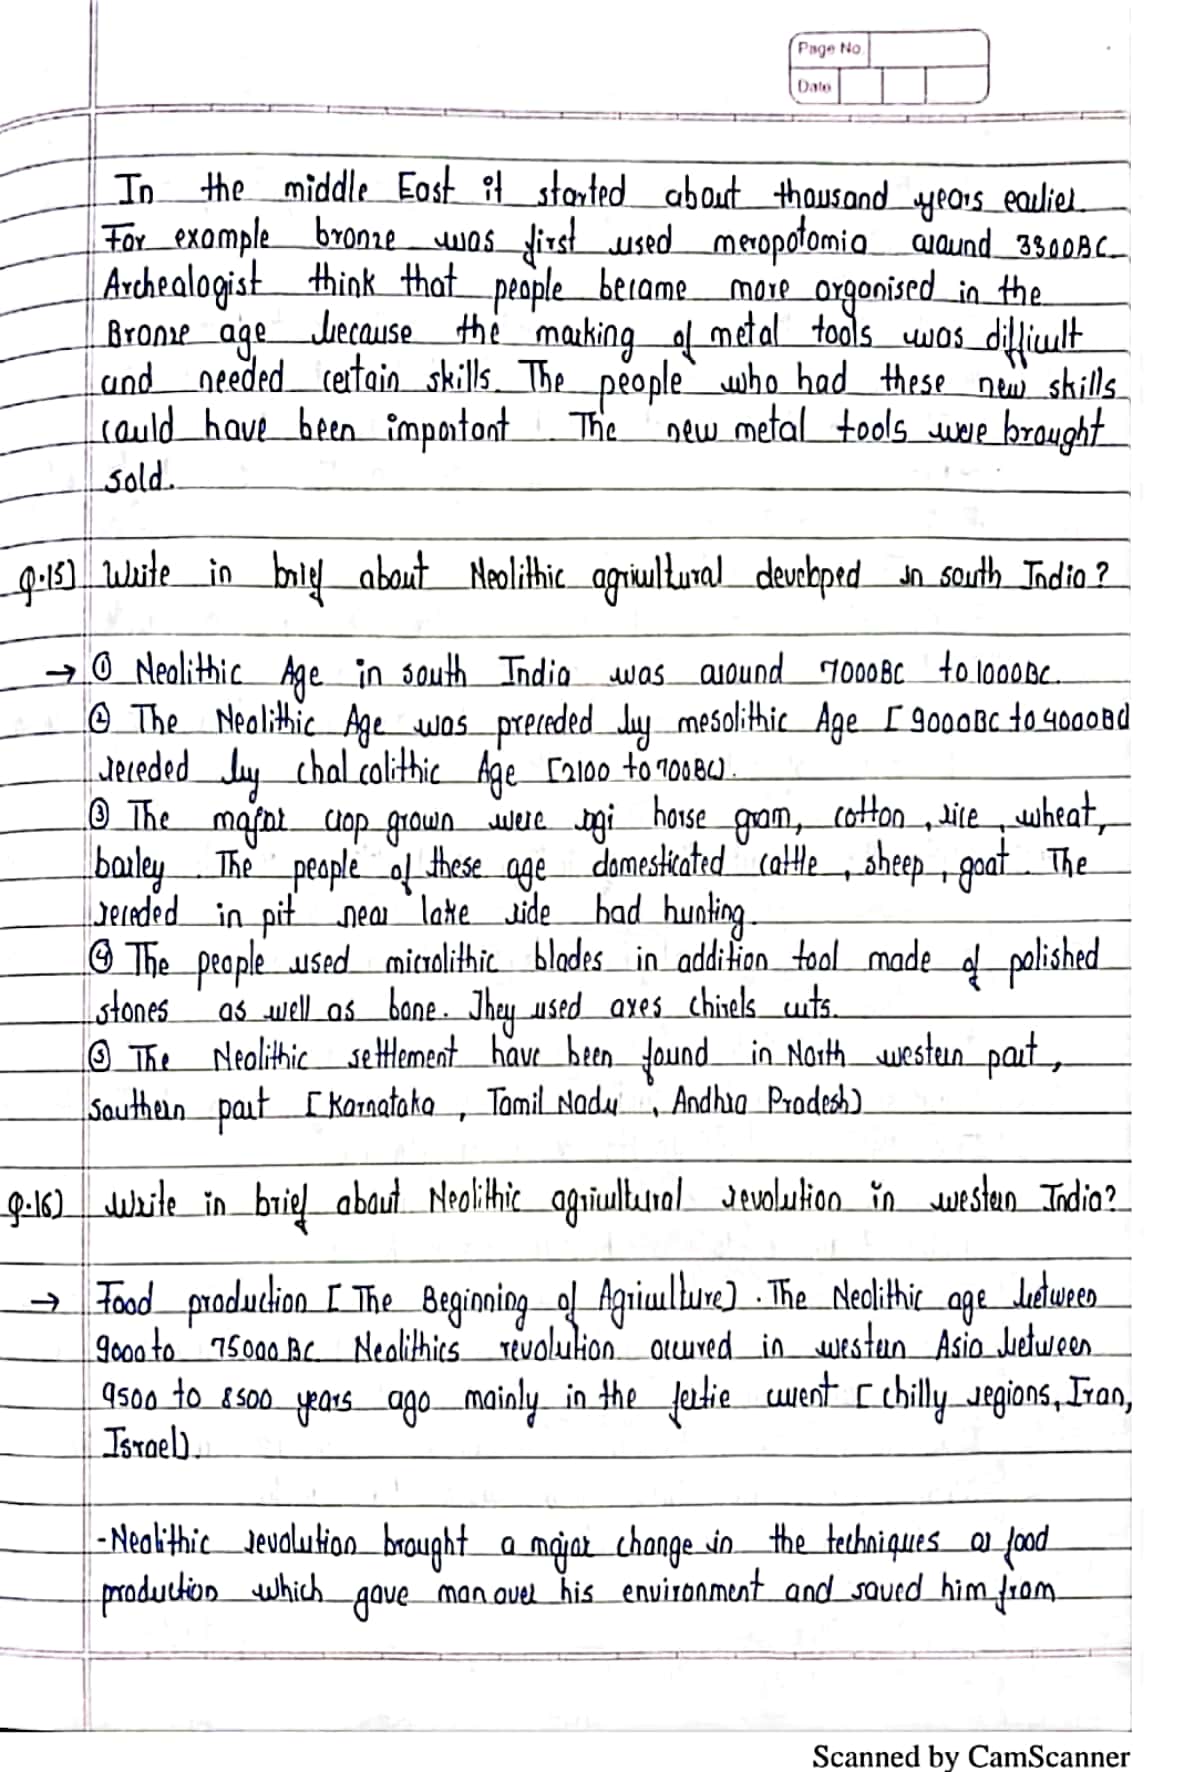 Page No.
Date
In the middle East it started about thousand years earlier
For example bronze was first used meropotomia around 3300BC
Archealogist think that people became more organised in the
Bronze age because the marking of metal tools was difficult
and needed certain skills. The people who had these new skills
could have been important. The new metal tools were brought
sold.
Q.15) Write in brief about Neolithic agricultural developed in south India?
→ ① Neolithic Age in south India was around 7000BC to 1000BC.
② The Neolithic Age was preceded by mesolithic Age [9000BC to 4000BC]
receded by chalcolithic Age [2100 to 700BC].
③ The major crop grown were ragi horse gram, cotton, rice, wheat,
barley. The people of these age domesticated cattle, sheep, goat. The
receded in pit near lake side had hunting.
④ The people used microlithic blades in addition tool made of polished
stones as well as bone. They used axes chisels cuts.
⑤ The Neolithic settlement have been found in North western part,
Southern part [Karnataka, Tamil Nadu, Andhra Pradesh]
Q.16) Write in brief about Neolithic agricultural revolution in western India?
→ Food production [The Beginning of Agriculture]. The Neolithic age between
9000 to 75000 BC. Neolithics revolution occured in western Asia between
9500 to 8500 years ago mainly in the fertie [chilly regions, Iran,
Israel].
-Neolithic revolution brought a major change in the techniques or food
production which gave man over his environment and saved him from
Scanned by CamScanner